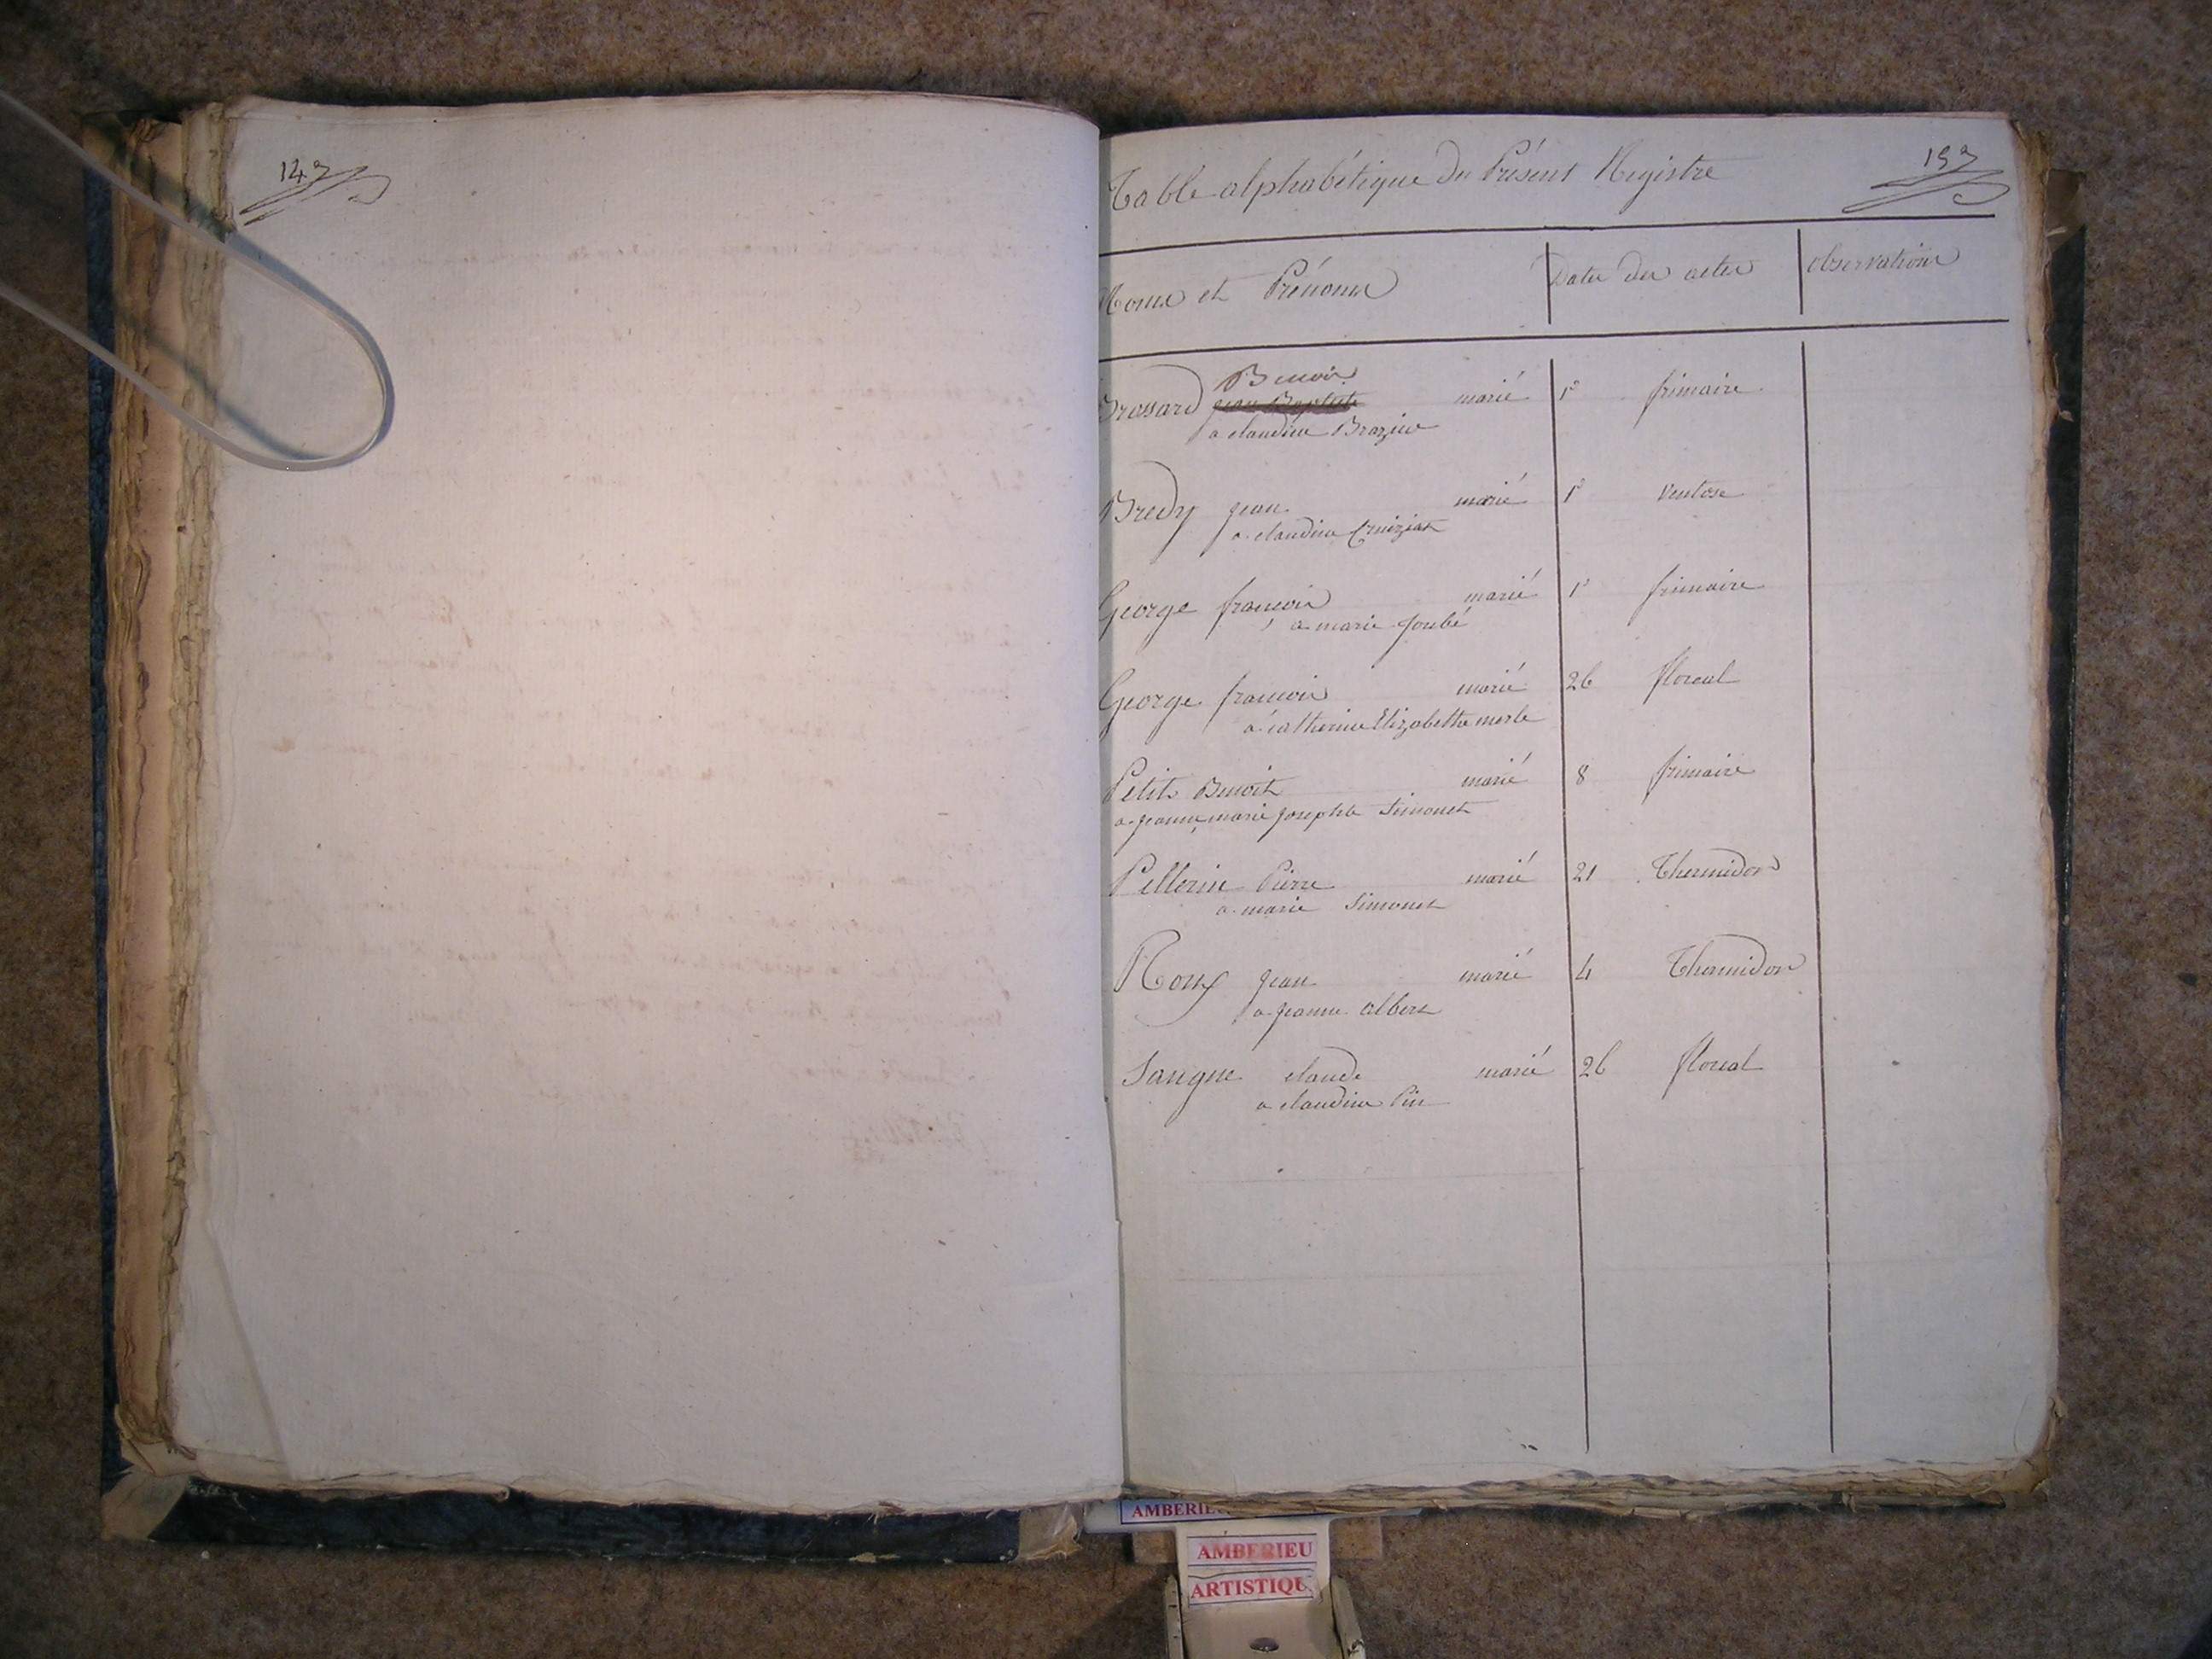 Table alphabétique du Présent Registre
Noms et Prénoms Dates des actes observations
Brossard Benoit
jean Baptiste marié 1er frimaire
a claudine Brazier
Bredy jean marié 1er Ventose
a claudine Cruiziat
George francois marié 1er frimaire
a marie Joubé
George francois marié 26 floreal
a catherine Elizabethe merle
Petit Benoit marié 8 frimaire
a jeanne marie josephte Simonet
Pellerin Pierre marié 21 Thermidor
a marie Simonet
Roux jean marié 4 Thermidor
a jeanne albert
Sangne claude marié 26 floreal
a claudine Pin
AMBERIEU
AMBERIEU
ARTISTIQU